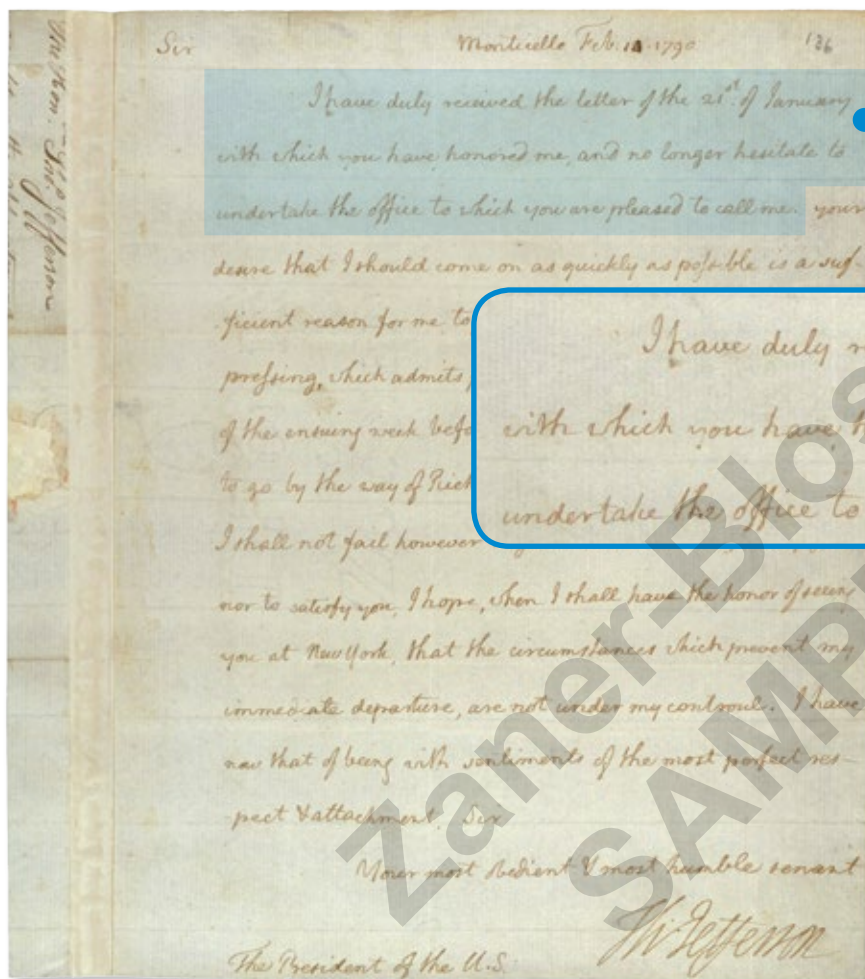 Sir
Monticello Feb. 14. 1790.
136
I have duly received the letter of the 21st. of January
with which you have honored me, and no longer hesitate to
undertake the office to which you are pleased to call me. your
desire that I should come on as quickly as possible is a suf-
ficient reason for me to
pressing, which admits
of the ensuing week befo
to go by the way of Rich
I shall not fail however
nor to satisfy you, I hope, when I shall have the honor of seeing
you at New York, that the circumstances which prevent my
immediate departure, are not under my controul. I have
now that of being with sentiments of the most perfect res-
pect & attachment, Sir
Your most obedient & most humble servant
Th: Jefferson
The President of the U.S.
I have duly r
with which you have h
undertake the office to
Jefferson
Zaner-Blos
SAMP